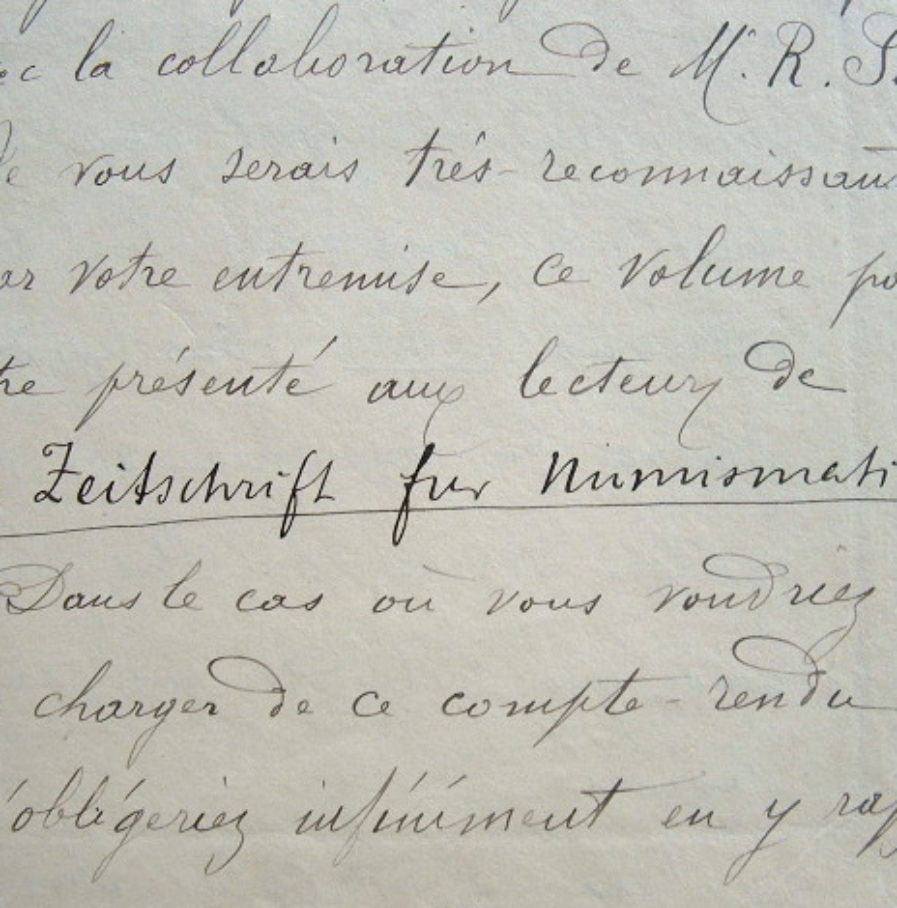 la collaboration de Mr. R. S.
vous serais trés-reconnaissant
votre entremise, ce volume
présenté aux lecteurs de
Zeitschrift fur Numismati
Dans le cas où vous voudriez
charger de ce compte-rendu
obligeriez infiniment en y